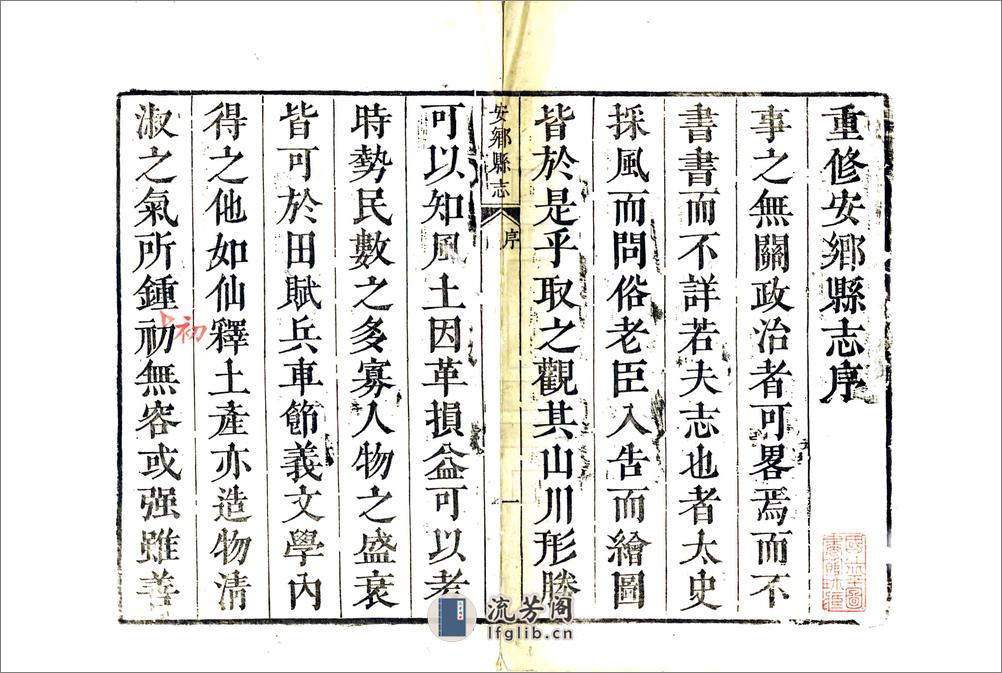 重修安鄉縣志序
事之無關政治者可畧焉而不
書書而不詳若夫志也者太史
採風而問俗老臣入告而繪圖
皆於是乎取之觀其山川形勝
安鄉縣志
序
一
可以知風土因革損益可以考
時勢民數之多寡人物之盛衰
皆可於田賦兵車節義文學內
得之他如仙釋土產亦造物清
初
淑之氣所鍾初無容或强雖善
流芳阁
lfglib.cn